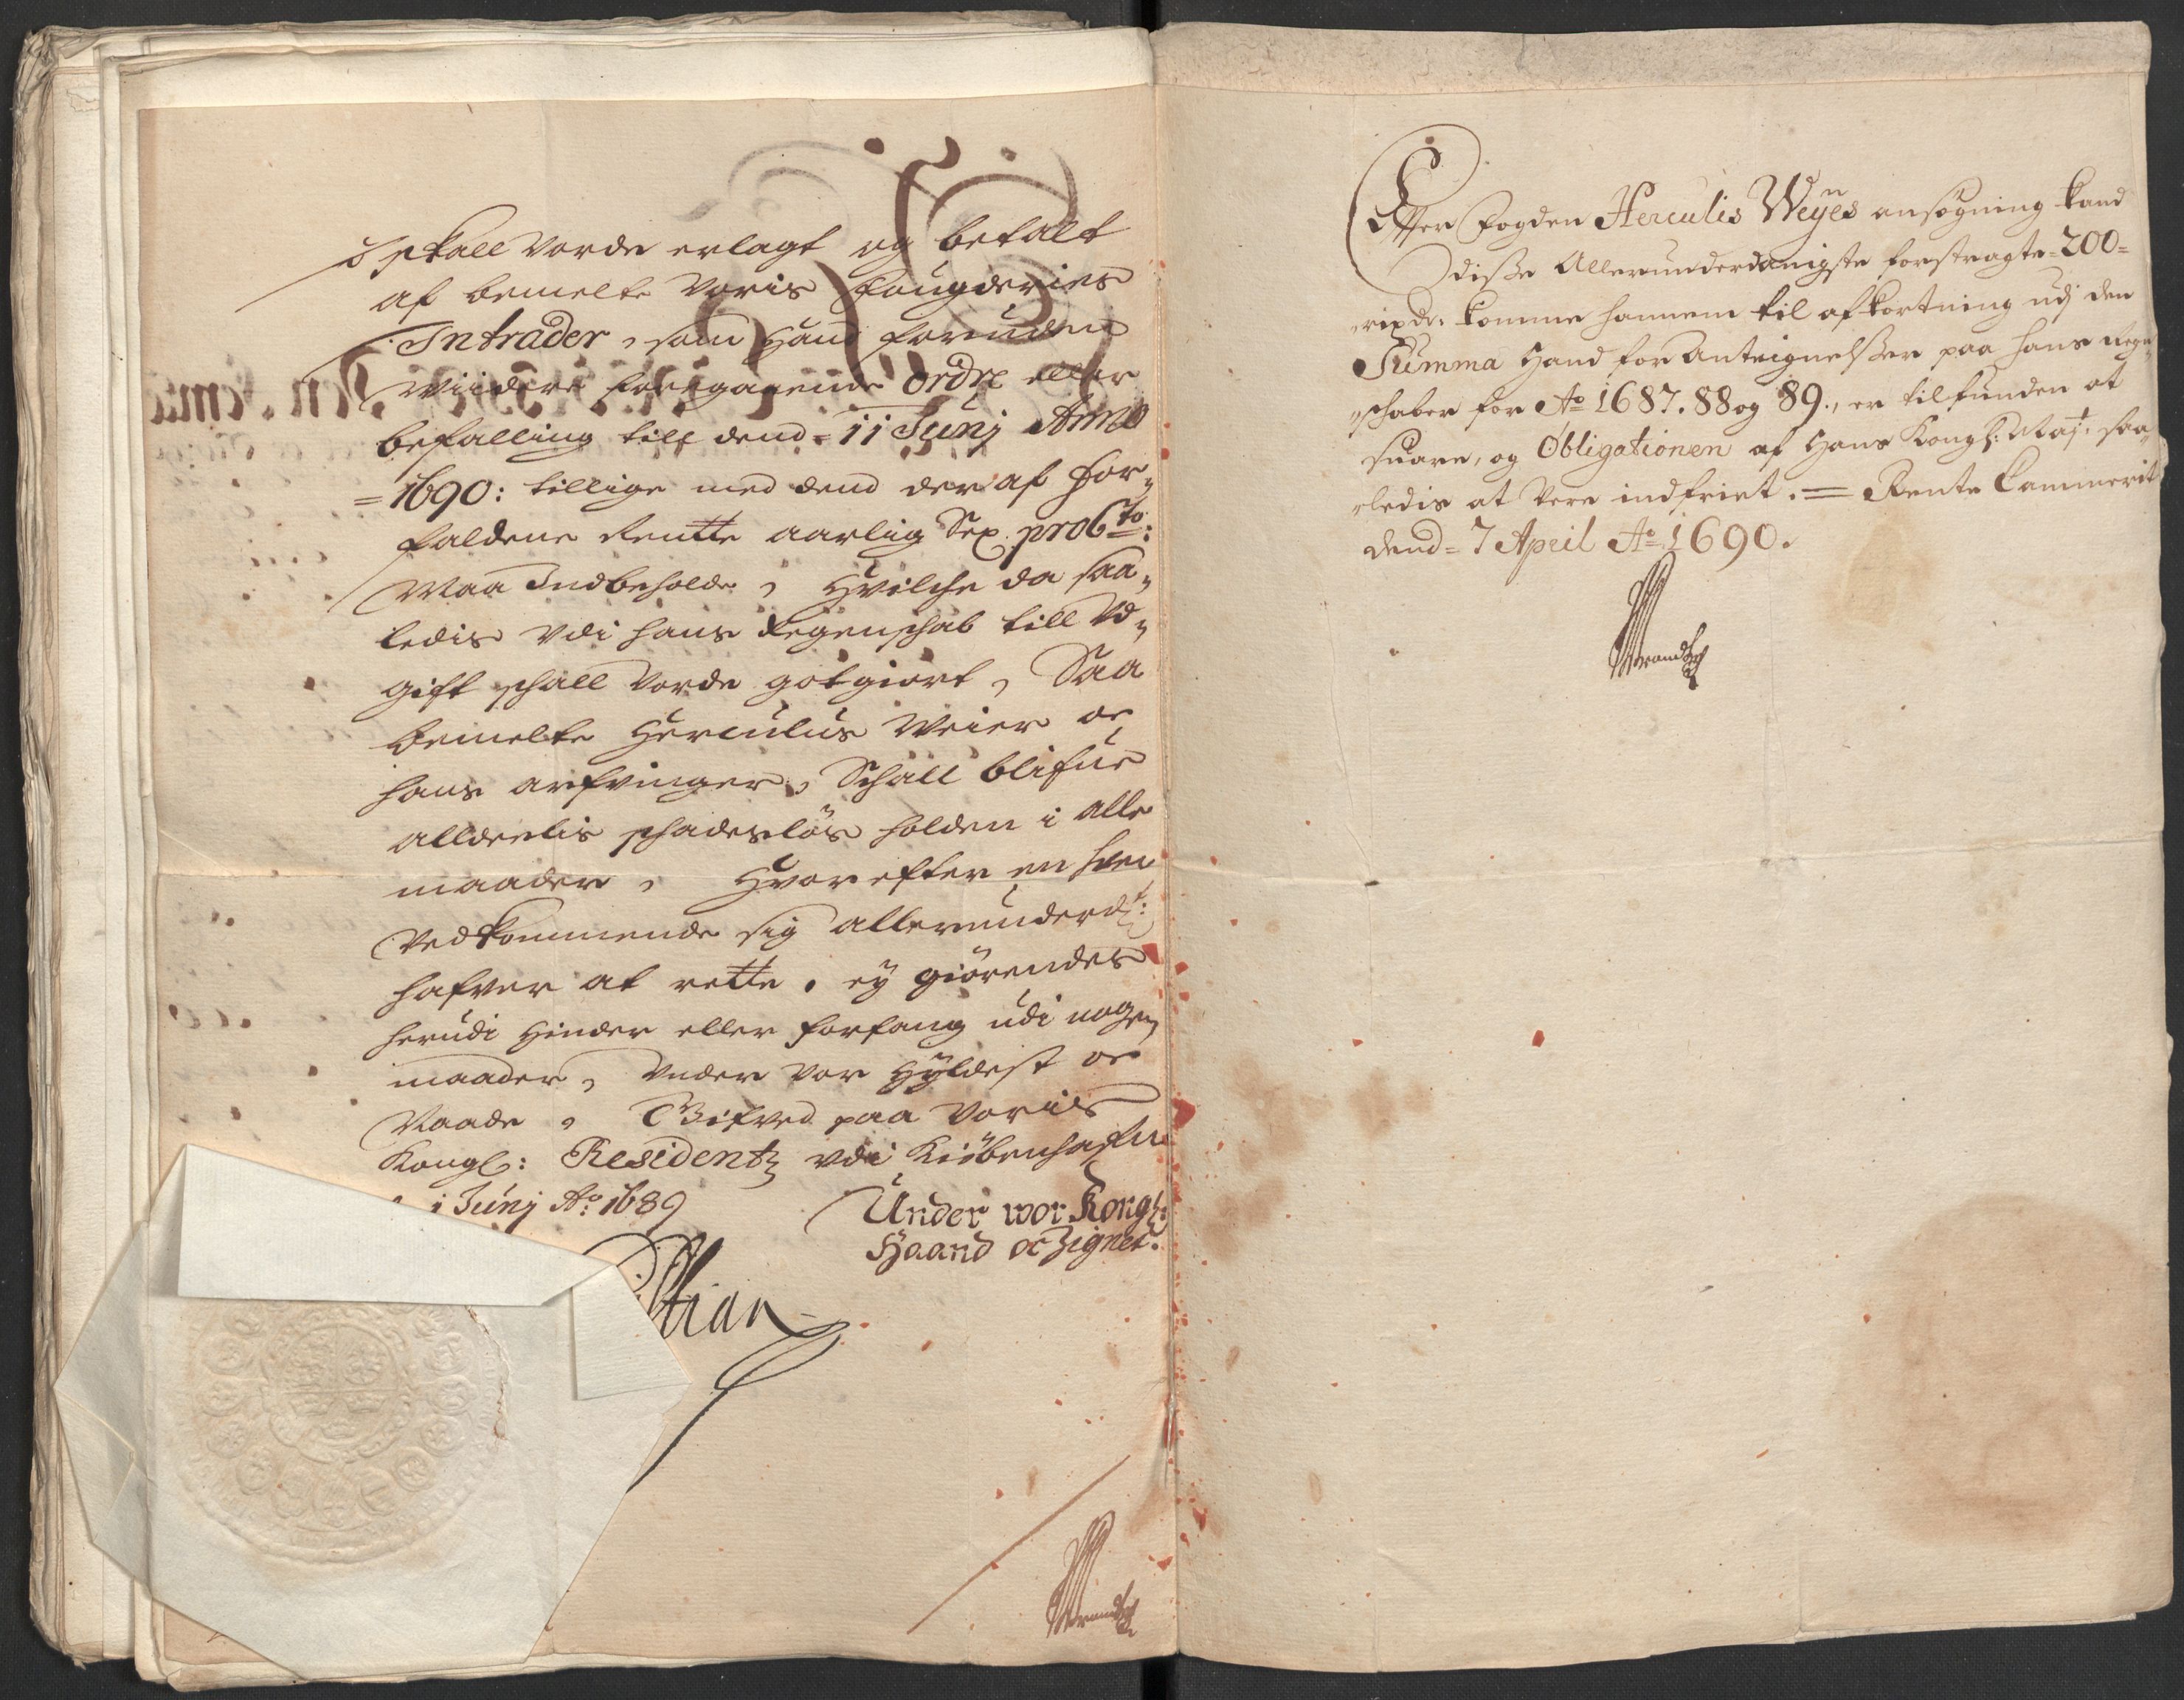 Schall vorde erlagt og betalt
af bemelte voris Fougderies
Intrader, som hand foruden
viidere foregaaende ordre eller
befalling till dend 11 Junj Anno
=1690: tillige med dend deraf for„
faldene Rentte aarlig Sex pro Cto:
Maa Indbeholde, hvilche da saa„
ledis udi hans Regenschab till Ud„
gift schall vorde gotgiort, Saa
bemelte Herculus Weier oc
hans arfvinger, Schall blifue
alldeelis schadesløs holden i alle
maader, Hvorefter en hver
vedkommende sig allerunderdt:
hafver at rette. ey giørendes
herudi hinder eller forfang udi nogen
maader, under vor Hyldest oc
Naade. Gifved paa voris
Kongl: Residentz udi Kiöbenhafn
1 Junj Ao: 1689
Under wor Kongl:
Haand oc Zignet.
stian
Efter Fogden Herculis Weyes ansøgning kand
disse Allerunderdanigste forstragte =200=
rixdr. komme hannem til afkortning udj den
Summa hand for Anteignelsser paa hans Regn„
„schaber for Ao 1687. 88 og 89., er tilfunden at
suare, og Obligationen af Hans Kongl: Mayt: saa„
„ledis at vere indfriet. = Rente Cammerit
dend= 7 April Ao 1690.